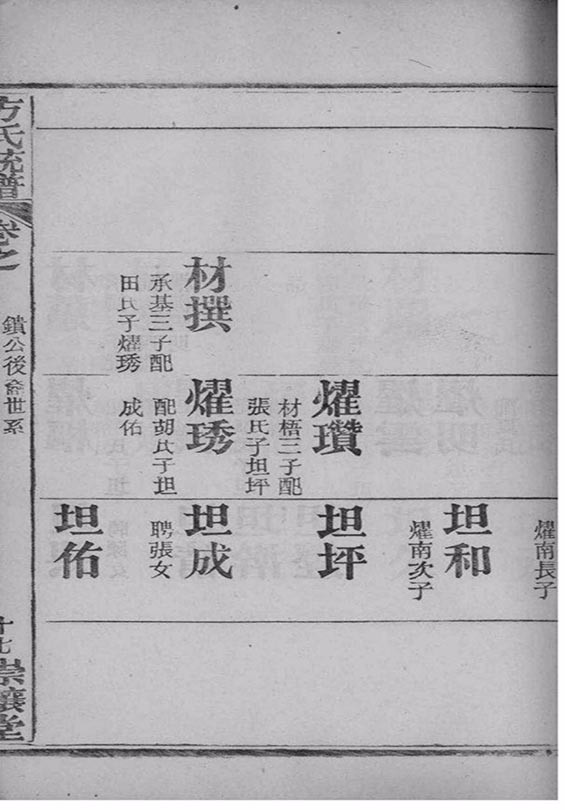 燿南長子
坦和
燿南次子
燿瓚
材梧三子配
張氏子坦坪
坦坪
材撰
承基三子配
田氏子燿琇
燿琇
配胡氏子坦
成佑
坦成
聘張女
坦佑
方氏統譜
卷之
鎖公後
世系
十七
崇讓堂